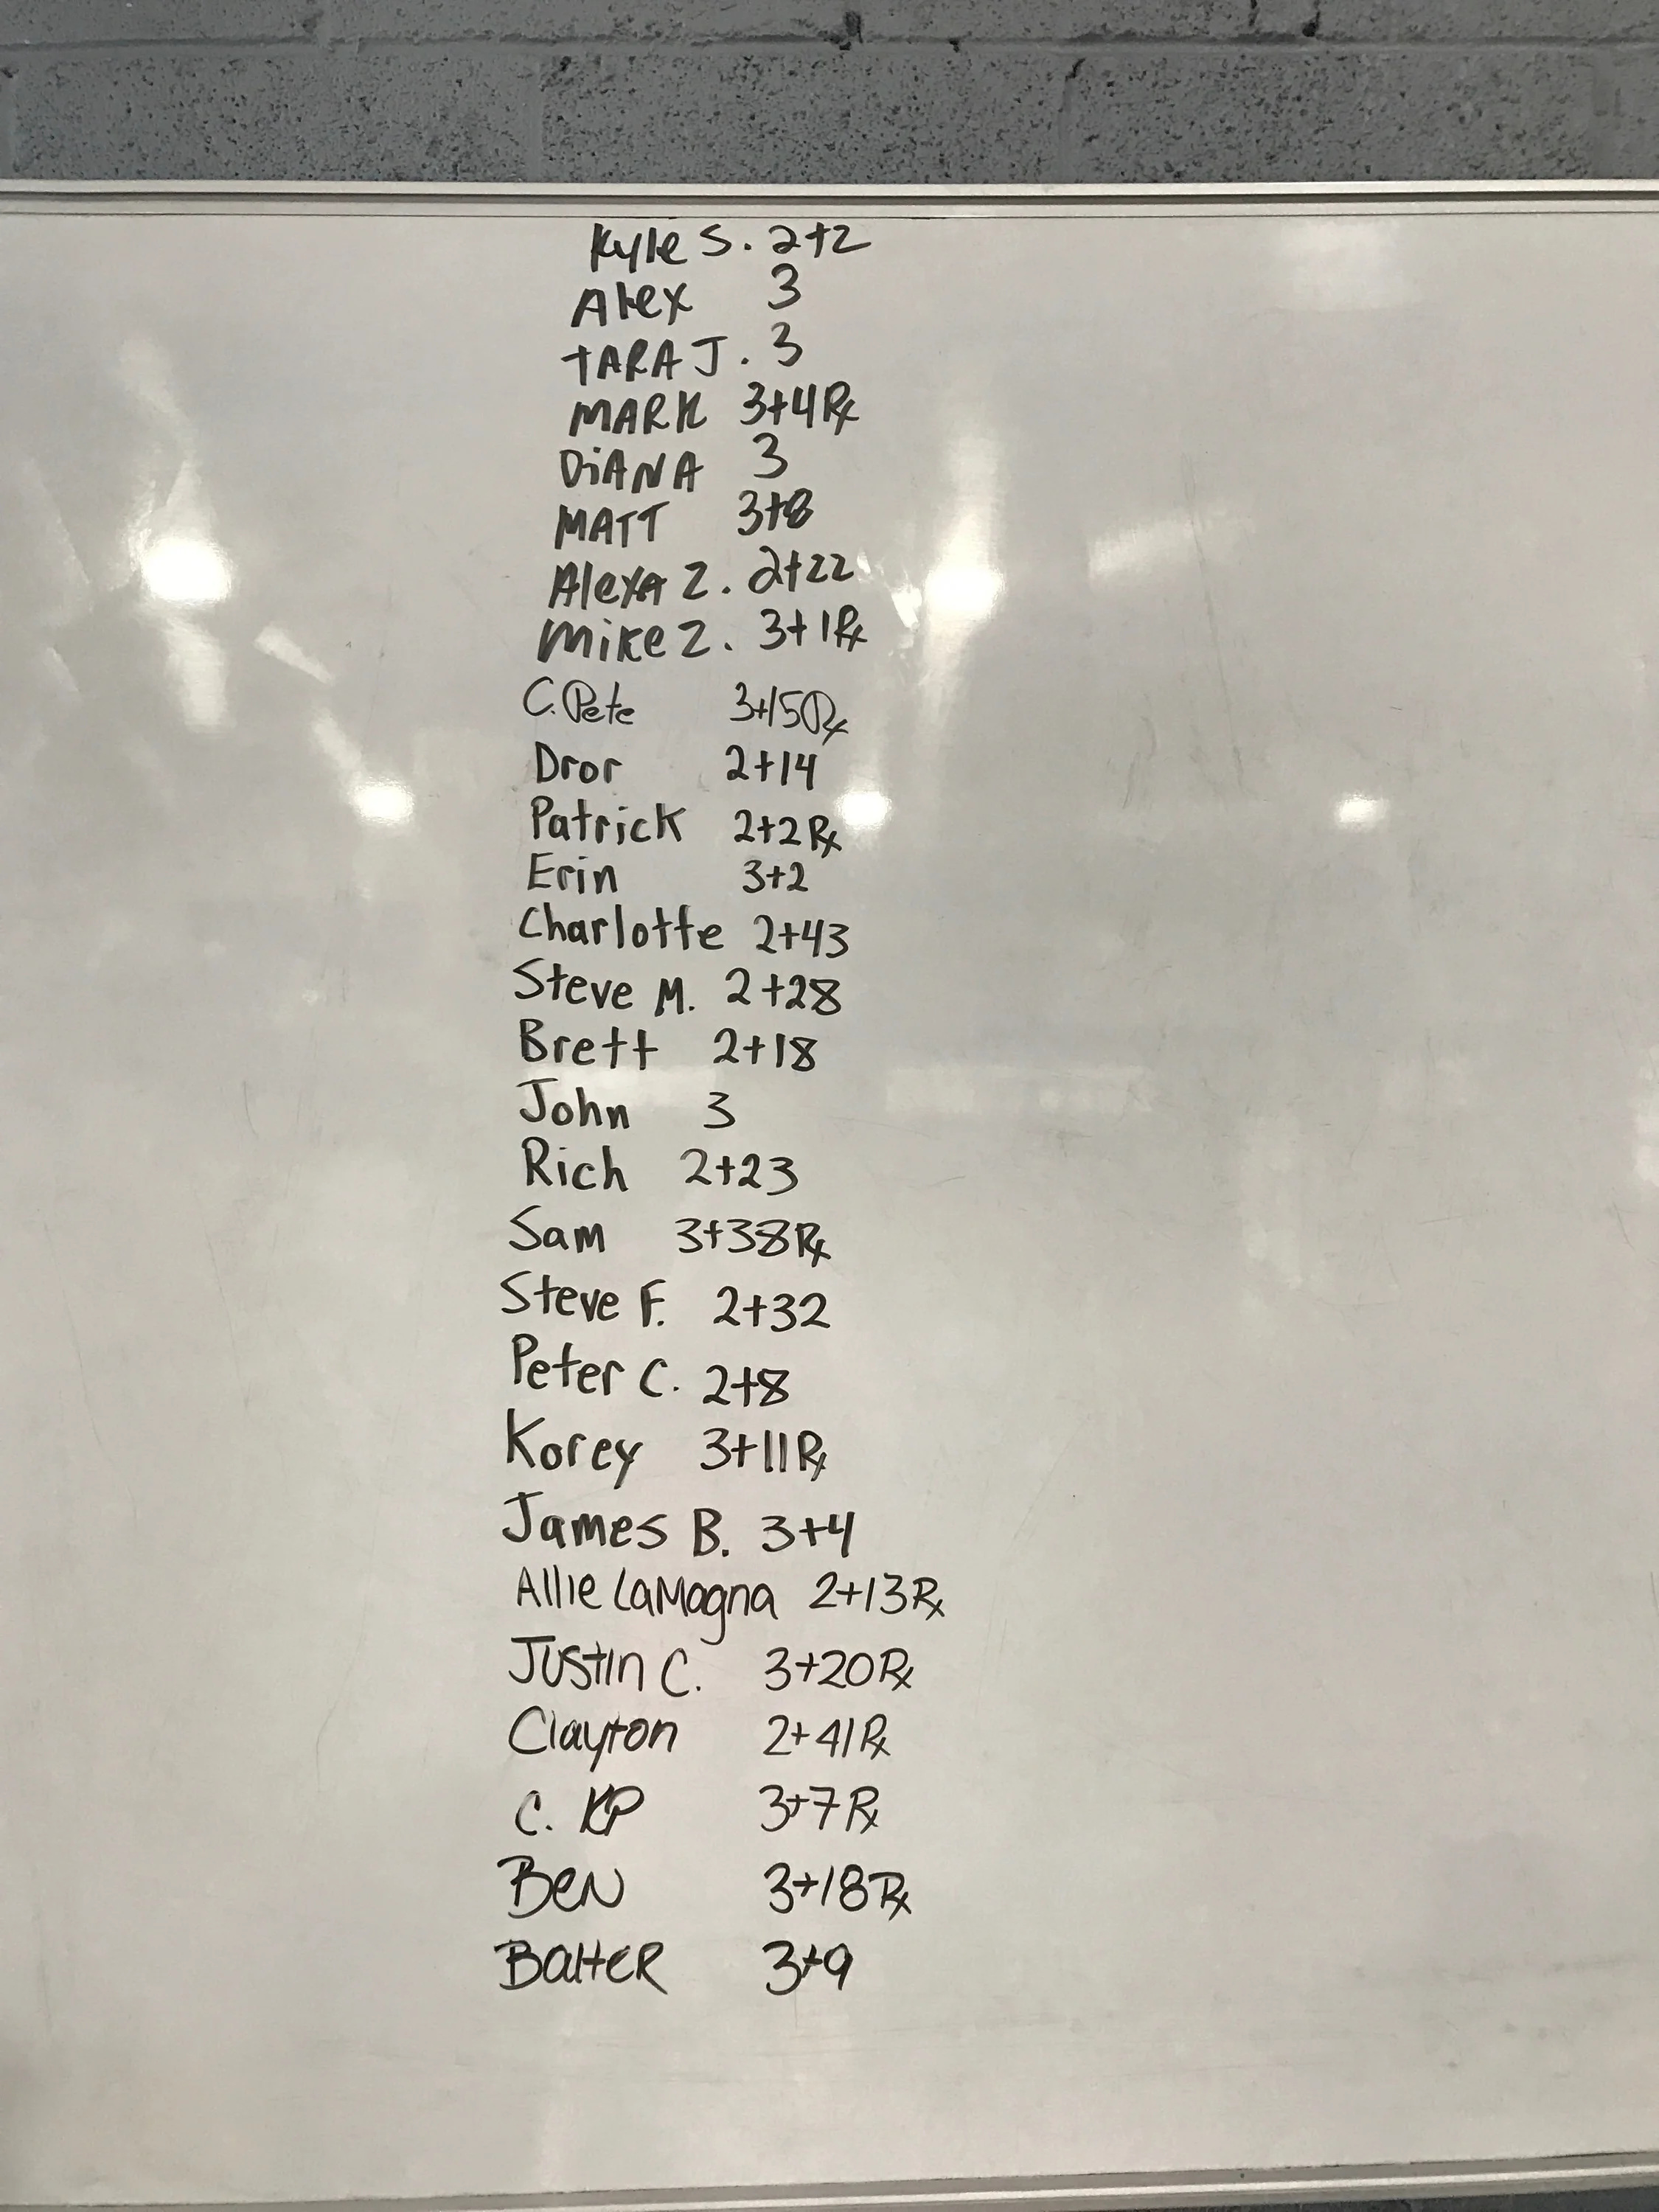 Kyle S. 2+2
Alex 3
TARA J. 3
MARK 3+4 Rx
DiANA 3
MATT 3+8
Alexa Z. 2+22
Mike Z. 3+1 Rx
C. Pete 3+15 Rx
Dror 2+14
Patrick 2+2 Rx
Erin 3+2
Charlotte 2+43
Steve M. 2+28
Brett 2+18
John 3
Rich 2+23
Sam 3+38 Rx
Steve F. 2+32
Peter C. 2+8
Korey 3+11 Rx
James B. 3+4
Allie LaMagna 2+13 Rx
Justin C. 3+20 Rx
Clayton 2+41 Rx
C. KP 3+7 Rx
BeN 3+18 Rx
BalteR 3+9